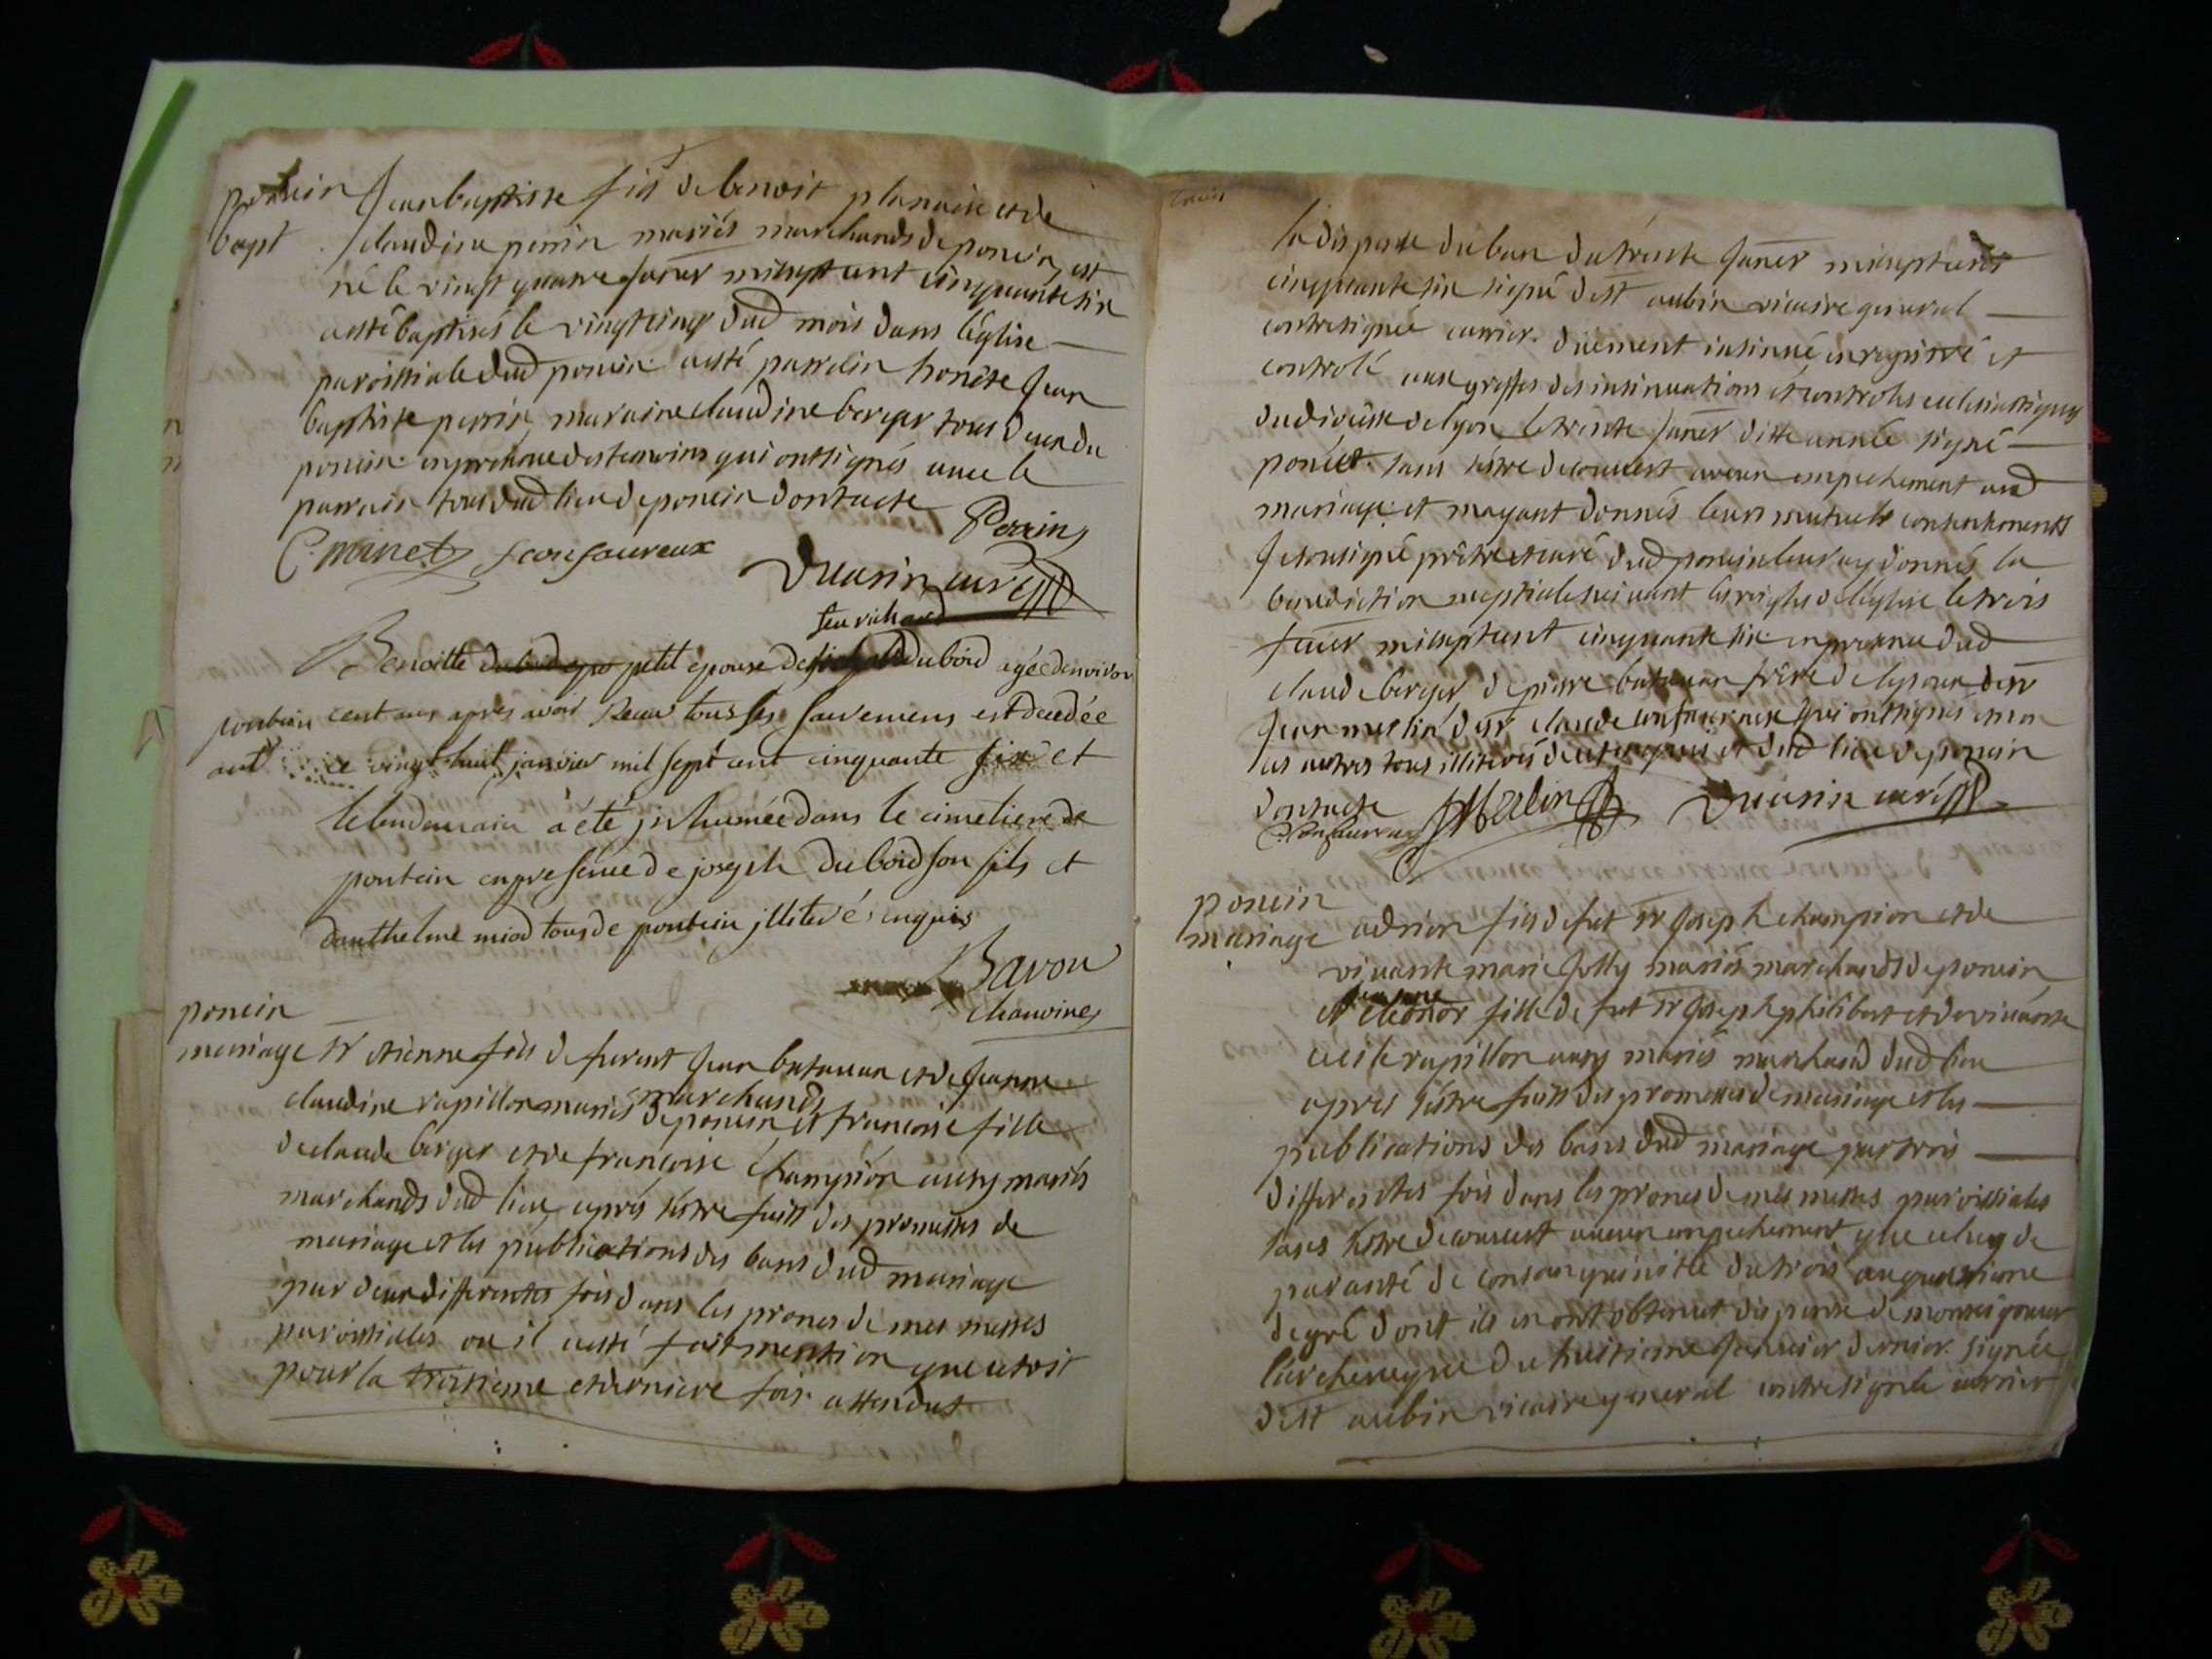 poncin Jean baptiste fils de benoit planaise et de
bapt. claudine perrin mariés marchands de poncin, est
né le vingt quatre janer mil sept cent cinquante six
a esté baptisés le vingt cinq dud mois dans l'église
paroissiale dud poncin a esté parrein honête Jean
baptiste perrin, maraine claudine berger tous deux du
poncin en presence des temoins qui ont signés avec le
parrain tous dud lieu de poncin dont acte
Perrin
C. minet Jconfavreux
Duarin curé
feu richard
Benoitte petit epouse de dubord agée denviron
pontcin cent ans apres avoir Receu tous ses sacremens est decedée
ent ce vingt huit janvier mil sept cent cinquante six et
le lendemain a été jnhumée dans le cimetiere de
pontcin en presence de joseph dubord son fils et
danthelme miod tous de pontcin jlliteré enquis
Bavou
chanoine
poncin
mariage Sr etienne fils de furent Jean batavan et de Jeanne
marchands
claudine rapillon mariés de poncin et francoise fille
de claude berger et de francoise champion aussy mariés
marchands dud lieu, aprés s'éstre faitt des promesses de
mariage et les publications des bans dud mariage
par deux differentes fois dans les prones de mes messes
paroissiales ou il a esté fait mention que c'etoit
pour la troisieme et derniere fois. attendut
trois
la dispense du ban du trente Janer mil sept cent
cinquante six signé de St aubin vicaire general
contresignée carrier. duement insinué, enregistré et
controlé aux greffes des insinuations et controles ecclesiastiques
du dioceese de lyon le trente Janer ditte année signé
poncet. sans s'éstre decouvert aucun empechement aud
mariage. et mayant donnés leurs mutuels consentements
Je soussigné prêtre et curé dud poncin leur ay donnés la
benediction nuptiale suivant les reigles de l'eglise le trois
fever mil sept cent cinquante six en presence dud
claude berger de pierre batavan frère de l'epoux, de sr
Jean merlin de sr claude confavreux qui ont signés et non
les autres tous illiterés de ce enquis et dud lieu de poncin
dont acte
C. Confavreux JMerlin Duarin curé
poncin
mariage adrien fils de fut sr Joseph champion et de
vivante marie Jolly mariés marchands de poncin
Jeanne
et eleonor fille de fut sr Joseph philibert et de vivante
cecile rapillon aussy mariés marchand dud lieu
apres s'éstre faitt des promesses de mariage et les
publications des bans dud mariage par trois
differentes fois dans les prones de mes messes paroissiales
sans s'éstre decouvert aucun empechement que celuy de
paranté de consanguinitté du trois au quatrieme
degré dont ils en ont obtenut dispense de monseigneur
l'archeveque du huitieme Janvier dernier. signée
de St aubin vicaire general contresignée carrier